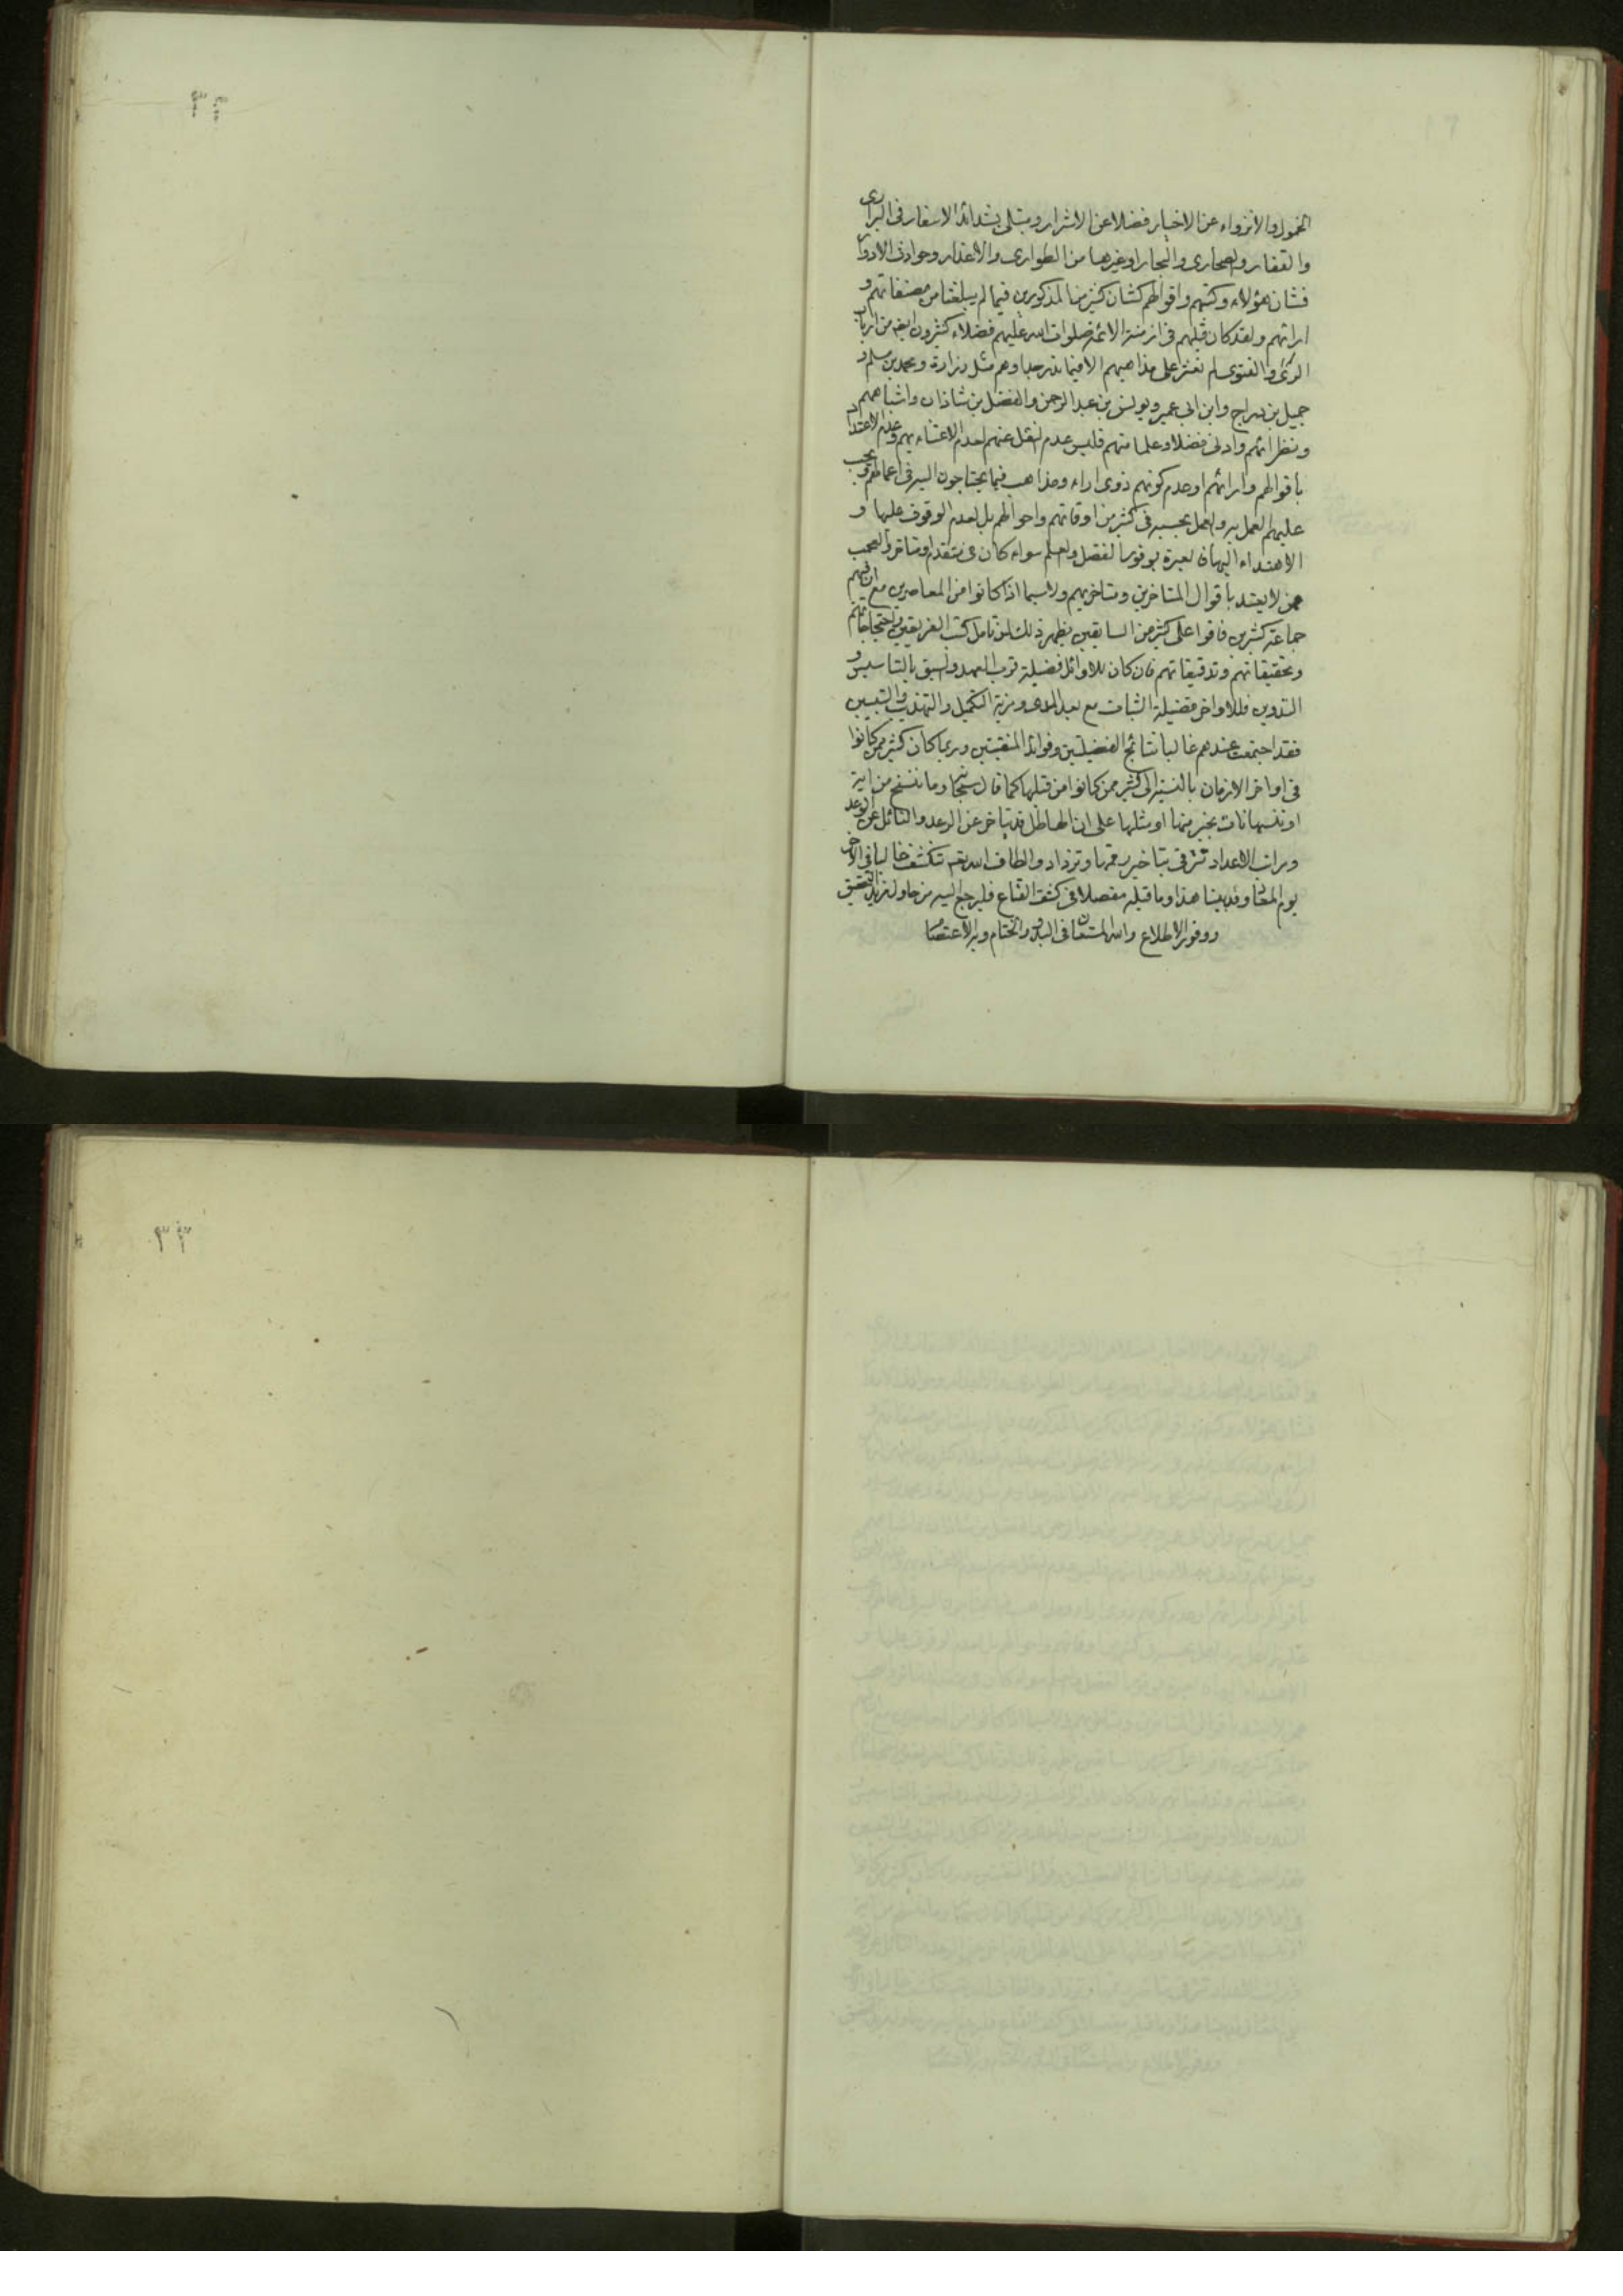 الخمول والانزواء عن الاخيار فضلا عن الاشرار ويبتلى بشدائد الاسفار فى البرارى
والقفار والصحارى والبحار او غيرها من الطوارى والاعذار وحوادث الادوار
فشان هؤلاء وكتبهم واقوالهم كشان كثير من المذكورين فيما لم يبلغنا من مصنفاتهم و
ارائهم ولقد كان قبلهم فى ازمنة الائمة صلوات الله عليهم فضلاء كثيرون ايضا من ارباب
الراى والفتوى لم نعثر على مذاهبهم الا فيما ندر جدا وهم مثل زرارة ومحمد بن مسلم و
جميل بن دراج وابن ابى عمير ويونس بن عبد الرحمن والفضل بن شاذان واشباههم
ونظرائهم وادنى فضلا وعلما منهم فليس عدم النقل عنهم لعدم الاعتناء بهم وعدم الاعتداد
باقوالهم وارائهم او عدم كونهم ذوى اراء ومذاهب فيما يحتاجون اليه فى اعمالهم ويجب
عليهم العمل به والعمل بحسبه فى كثير من اوقاتهم واحوالهم بل لعدم الوقوف عليها و
الاهتداء اليها فالعبرة بوفور الفضل والعلم سواء كان فى متقدم او متاخر والعجب
ممن لا يعتد باقوال المتاخرين ومتاخريهم ولاسيما اذا كانوا من المعاصرين مع ان فيهم
جماعة كثيرين فاقوا على كثير من السابقين يظهر ذلك لمن تامل كتب الفريقين واحتجاجاتهم
وتحقيقاتهم وتدقيقاتهم فان كان للاوائل فضيلة قرب العهد والسبق بالتاسيس و
التدوين فللاواخر فضيلة الثبات مع بعد المدى ومزية التكميل والتهذيب والتبيين
فقد اجتمعت عندهم غالبا نتائج الفضيلتين وفوائد المنقبتين وربما كان كثير ممن كانوا
فى اواخر الازمان بالنسبة الى كثير ممن كانوا من قبلها كما قال سبحانه وما ننسخ من اية
او ننسها نات بخير منها او مثلها على ان الهاطل قد يتاخر عن الرعد والنائل عن الوعد
ومراتب الاعداد تترقى بتاخير رقمها وتزداد والطاف الله تعم تنكشف غالبا فى الاخر
يوم المعاد وقد بينا هذا وما قبله مفصلا فى كشف القناع فليرجع اليه من حاول مزيد التحقيق
ووفور الاطلاع والله المستعان فى البدو والختام وبه الاعتصام
٣٢
٣٣